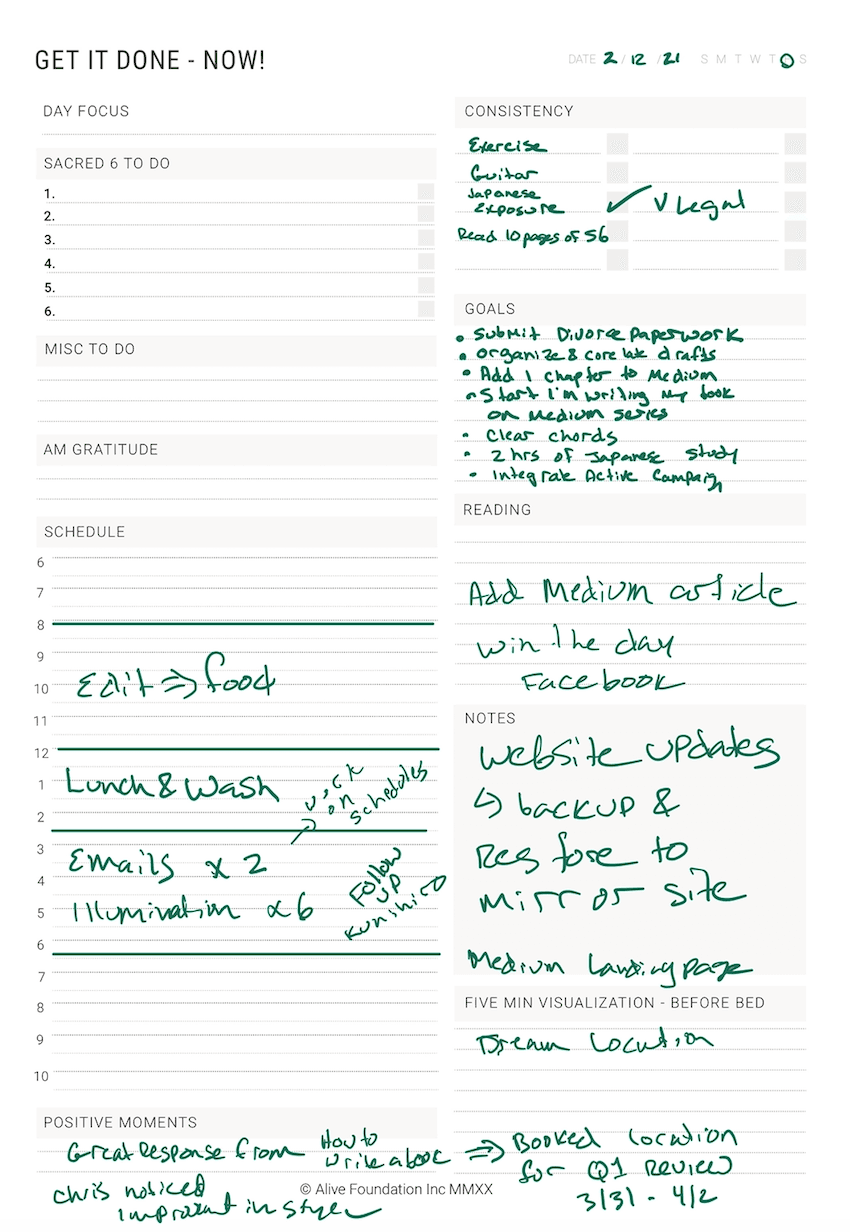 GET IT DONE - NOW!
DATE 2 / 12 / 21 S M T W T S
DAY FOCUS
SACRED 6 TO DO
1.
2.
3.
4.
5.
6.
MISC TO DO
AM GRATITUDE
SCHEDULE
6
7
8
9
10
Edit ⇒ food
11
12
1
Lunch & Wash
2
→
on
schedules
3
Emails x 2
4
Follow
up
Kunihiro
5
Illumination x6
6
7
8
9
10
POSITIVE MOMENTS
Great Response from How to
write a book ⇒ Booked location
for Q1 Review
3/31 - 4/2
Chris noticed
in style
CONSISTENCY
Exercise
Guitar
Japanese
Exposure ✓ V Legal
Read 10 pages of S6
GOALS
• Submit Divorce Paperwork
• Organize 8 core drafts
• Add 1 chapter to Medium
• Start I'm writing my book
on Medium series
• Clear chords
• 2 hrs of Japanese study
• Integrate Active Campaign
READING
Add Medium article
Win the day
Facebook
NOTES
Website updates
↳ backup &
Restore to
mirror site
Medium Landing page
FIVE MIN VISUALIZATION - BEFORE BED
Dream Location
© Alive Foundation Inc MMXX